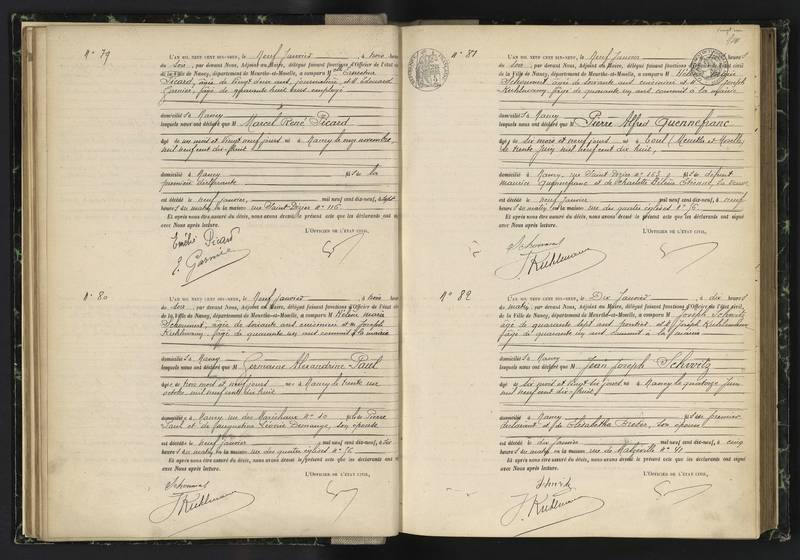 N° 79
L'AN MIL NEUF CENT DIX-NEUF, le Neuf Janvier à trois heures
du Soir, par devant Nous, Adjoint au Maire, délégué faisant fonctions d'Officier de l'état
de la Ville de Nancy, département de Meurthe-et-Moselle, a comparu M
Picard, âgée de vingt deux ans, journalière, et Edouard
Garnier, âgé de quarante huit ans employé
domiciliés à Nancy
lesquels nous ont déclaré que M Marcel René Picard
âgé de un mois et vingt neuf jours né à Nancy le onze novembre
mil neuf cent dix-huit
domicilié à Nancy fils de la
première déclarante
est décédé le neuf janvier, mil neuf cent dix-neuf, à sept
heures du matin, en la maison rue Saint Dizier n° 116
Et après nous être assuré du décès, nous avons dressé le présent acte que les déclarants ont signé
avec Nous après lecture.
L'OFFICIER DE L'ÉTAT CIVIL,
Emélie Picard
E. Garnier
N° 80
L'AN MIL NEUF CENT DIX-NEUF, le Neuf Janvier à trois heures
du Soir, par devant Nous, Adjoint au Maire, délégué faisant fonctions d'Officier de l'état
de la Ville de Nancy, département de Meurthe-et-Moselle, a comparu M Hélène Marie
âgée de soixante ans cuisinière et M Joseph
Kuhlmann, âgé de quarante un ans commis à la mairie
domiciliés à Nancy
lesquels nous ont déclaré que M Germaine Alexandrine Paul
âgée de trois mois et neuf jours née à Nancy le trente
octobre mil neuf cent dix huit
domiciliée à Nancy rue des Maréchaux n° 20 fille de Pierre
Paul et de Léonie Demange, son épouse
est décédée le neuf janvier, mil neuf cent dix-neuf, à
heures du matin, en la maison rue des quatre églises n° 76
Et après nous être assuré du décès, nous avons dressé le présent acte que les déclarants ont signé
avec Nous après lecture.
L'OFFICIER DE L'ÉTAT CIVIL,
J Kuhlmann
N° 81
L'AN MIL NEUF CENT DIX-NEUF, le Neuf Janvier heures
du Soir, par devant Nous, Adjoint au Maire, délégué faisant fonctions d'Officier de l'état civil
de la Ville de Nancy, département de Meurthe-et-Moselle, a comparu M Hélène Marie
âgée de soixante ans cuisinière et M Joseph
Kuhlmann, âgé de quarante un ans commis à la mairie
domiciliés à Nancy
lesquels nous ont déclaré que M Pierre Alfred Quennefranc
âgé de six mois et neuf jours né à Toul (Meurthe et Moselle)
le trente juin mil neuf cent dix huit,
domicilié à Nancy, rue Saint Dizier n° fils de défunt
Maurice Quennefranc et de Charlotte sa veuve
est décédé le neuf janvier mil neuf cent dix-neuf, à neuf
heures du matin, en la maison rue des quatre églises n° 76
Et après nous être assuré du décès, nous avons dressé le présent acte que les déclarants ont signé
avec Nous après lecture.
L'OFFICIER DE L'ÉTAT CIVIL,
J Kuhlmann
N° 82
L'AN MIL NEUF CENT DIX-NEUF, le Dix Janvier à dix heures
du matin, par devant Nous, Adjoint au Maire, délégué faisant fonctions d'Officier de l'état civil
de la Ville de Nancy, département de Meurthe-et-Moselle, a comparu M Joseph Schwitz
âgé de quarante sept ans et M Joseph Kuhlmann
âgé de quarante un ans commis à la mairie
domiciliés à Nancy
lesquels nous ont déclaré que M Jean Joseph Schwitz
âgé de six mois et vingt six jours né à Nancy le quatorze juin
mil neuf cent dix-huit,
domicilié à Nancy fils du premier
déclarant et de Elisabetha son épouse
est décédé le dix janvier mil neuf cent dix-neuf, à cinq
heures du matin, en la maison rue de Malzéville n° 41
Et après nous être assuré du décès, nous avons dressé le présent acte que les déclarants ont signé
avec Nous après lecture.
L'OFFICIER DE L'ÉTAT CIVIL,
J. Kuhlmann